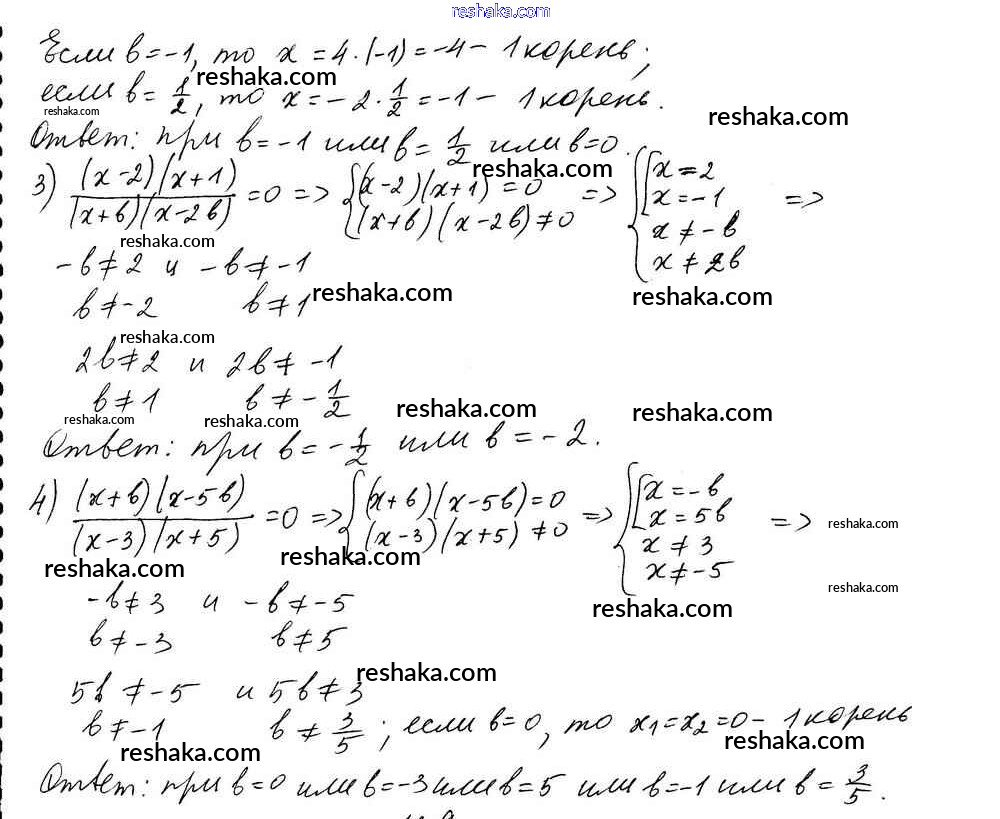 reshaka.com
Если b = -1, то x = 4·(-1) = -4 - 1 корень;
reshaka.com
если b = 1/2, то x = -2·1/2 = -1 - 1 корень.
reshaka.com reshaka.com
Ответ: при b = -1 или b = 1/2 или b = 0.
reshaka.com
3) (x-2)(x+1)/(x+b)(x-2b) = 0 => { (x-2)(x+1) = 0 (x+b)(x-2b) ≠ 0 => { [ x = 2 x = -1 x ≠ -b x ≠ 2b =>
reshaka.com
-b ≠ 2 и -b ≠ -1
reshaka.com reshaka.com
b ≠ -2 b ≠ 1
reshaka.com
2b ≠ 2 и 2b ≠ -1
b ≠ 1 b ≠ -1/2
reshaka.com reshaka.com reshaka.com reshaka.com
Ответ: при b = -1/2 или b = -2.
4) (x+b)(x-5b)/(x-3)(x+5) = 0 => { (x+b)(x-5b) = 0 (x-3)(x+5) ≠ 0 => { [ x = -b x = 5b x ≠ 3 x ≠ -5 =>
reshaka.com
reshaka.com reshaka.com
reshaka.com
-b ≠ 3 и -b ≠ -5
reshaka.com
b ≠ -3 b ≠ 5
reshaka.com
5b ≠ -5 и 5b ≠ 3
b ≠ -1 b ≠ 3/5; если b = 0, то x₁ = x₂ = 0 - 1 корень
reshaka.com reshaka.com
Ответ: при b = 0 или b = -3 или b = 5 или b = -1 или b = 3/5.